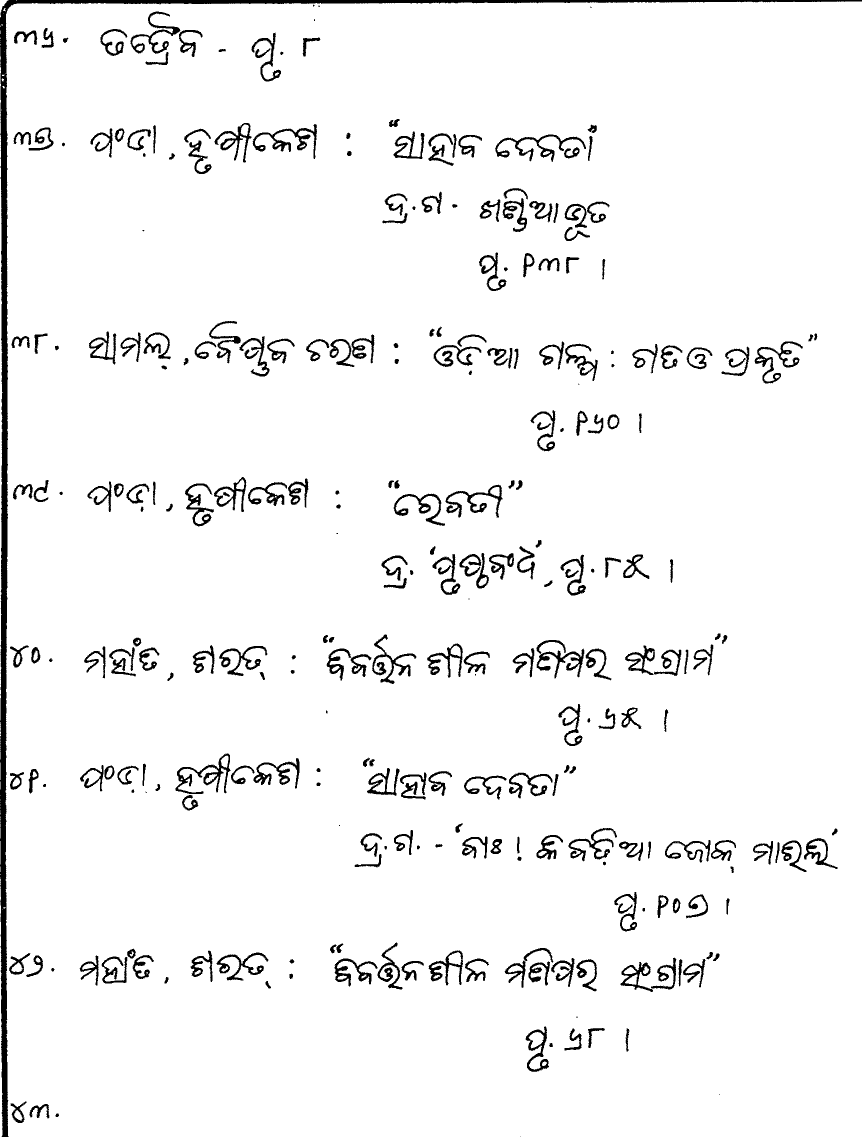 ୩୬. ତତ୍ରୈବ - ପୃ. ୮
୩୭. ପଂଡା, ହୃଷୀକେଶ : "ସାହାବ ଦେବତା"
ଦ୍ର.ଗ. ଖଣ୍ଡିଆଭୂତ
ପୃ. ୧୩୮ ।
୩୮. ସାମଲ୍, ବୈଷ୍ଣବ ଚରଣ : "ଓଡ଼ିଆ ଗଳ୍ପ : ଗତି ଓ ପ୍ରକୃତି"
ପୃ. ୧୬୦ ।
୩୯. ପଂଡା, ହୃଷୀକେଶ : "ରେବତୀ"
ଦ୍ର. 'ପୃଷ୍ଠବଂଧ', ପୃ. ୮୫ ।
୪୦. ମହାଂତି, ଶରତ୍ : "ବିବର୍ତ୍ତନ ଶୀଳ ମଣିଷର ସଂଗ୍ରାମ"
ପୃ. ୬୫ ।
୪୧. ପଂଡା, ହୃଷୀକେଶ : "ସାହାବ ଦେବତା"
ଦ୍ର.ଗ. - 'ବାଃ ! କି ବଢ଼ିଆ ଜୋକ୍ ମାରିଲ'
ପୃ. ୧୦୭ ।
୪୨. ମହାଂତି, ଶରତ୍ : "ବିବର୍ତ୍ତନ ଶୀଳ ମଣିଷର ସଂଗ୍ରାମ"
ପୃ. ୬୮ ।
୪୩.